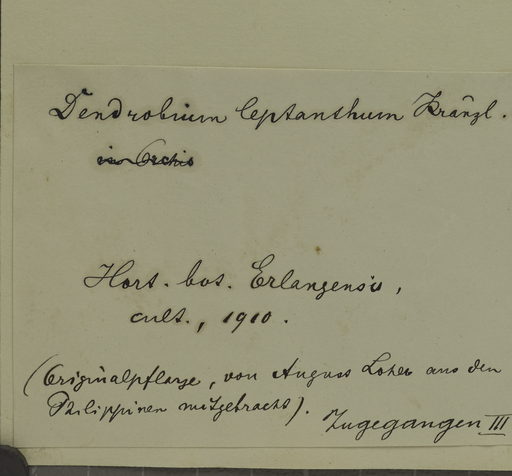 Dendrobium leptanthum Kränzl.
in Orchis
Hort. bot. Erlangensis,
cult., 1910.
(Originalpflanze, von August Loher aus den
Philippinen mitgebracht).
Zugegangen III